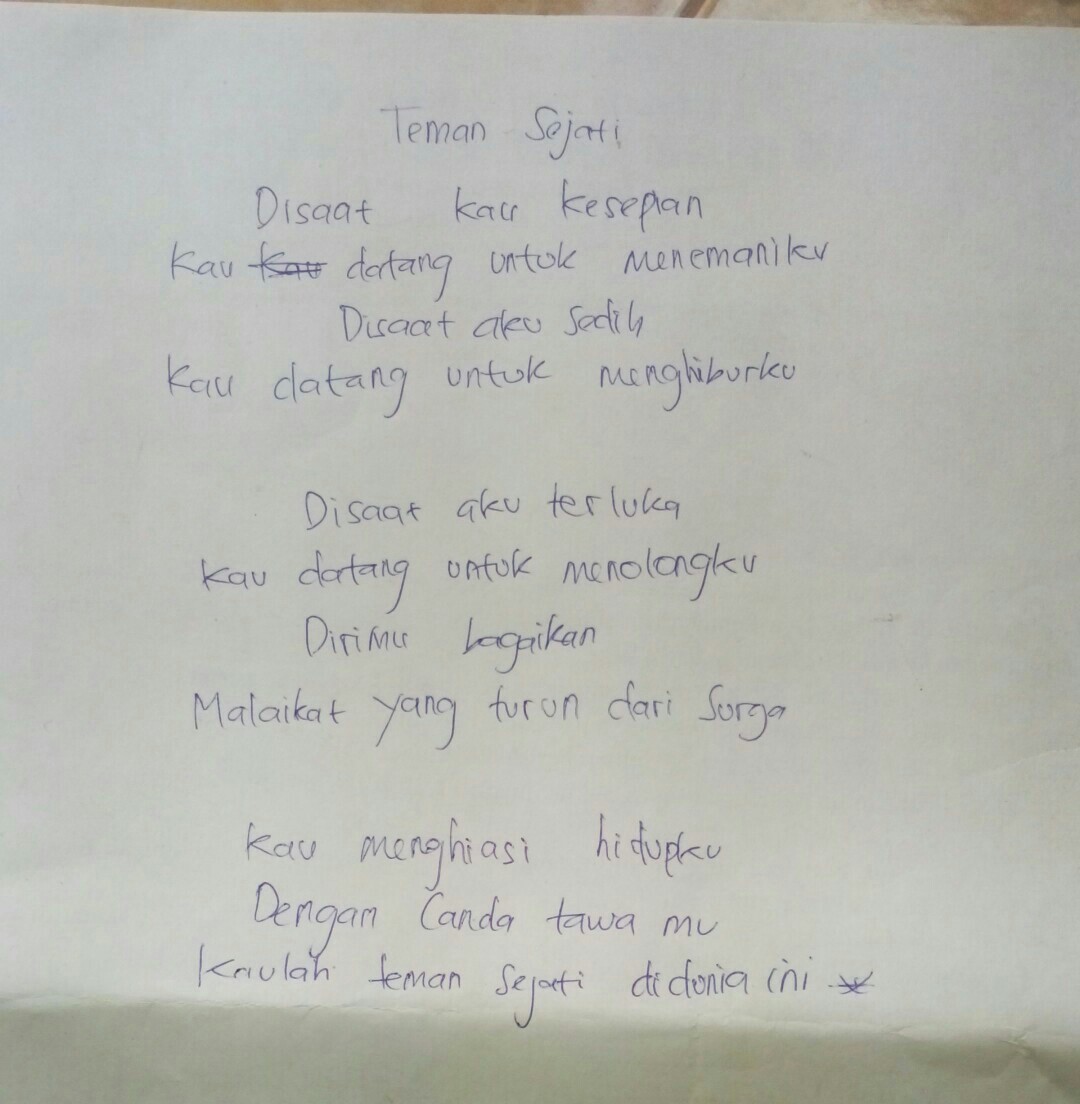 Teman Sejati
Disaat kau kesepian
Kau datang untuk menemaniku
Disaat aku sedih
Kau datang untuk menghiburku
Disaat aku terluka
Kau datang untuk menolongku
Dirimu bagaikan
Malaikat yang turun dari Surga
Kau menghiasi hidupku
Dengan Canda tawa mu
Kaulah teman Sejati didunia ini